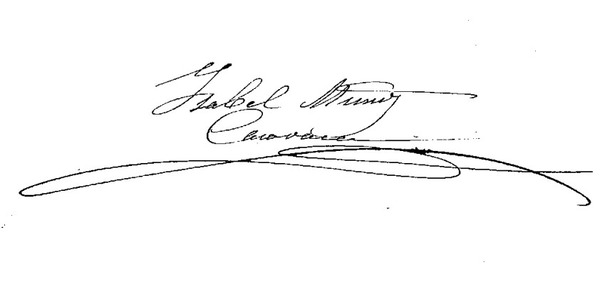 Ysabel Muñoz
Caravaca